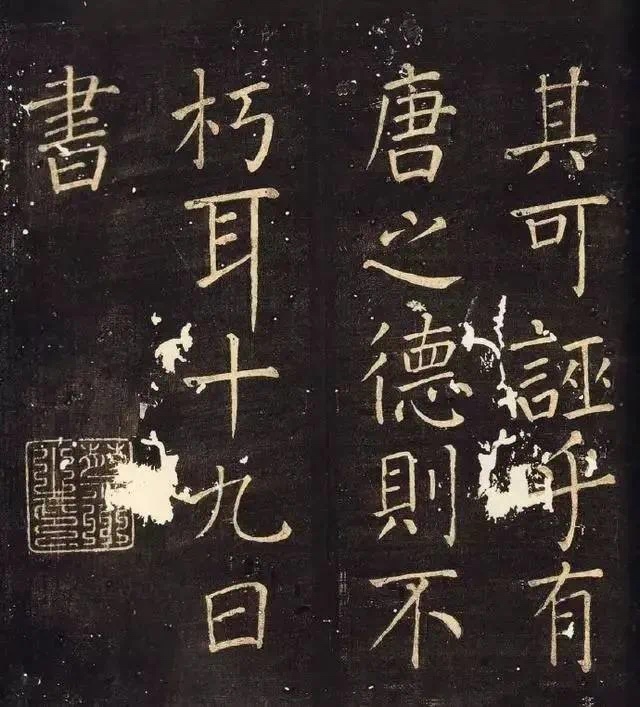 其可誣乎有
唐之德則不
朽耳十九日
書